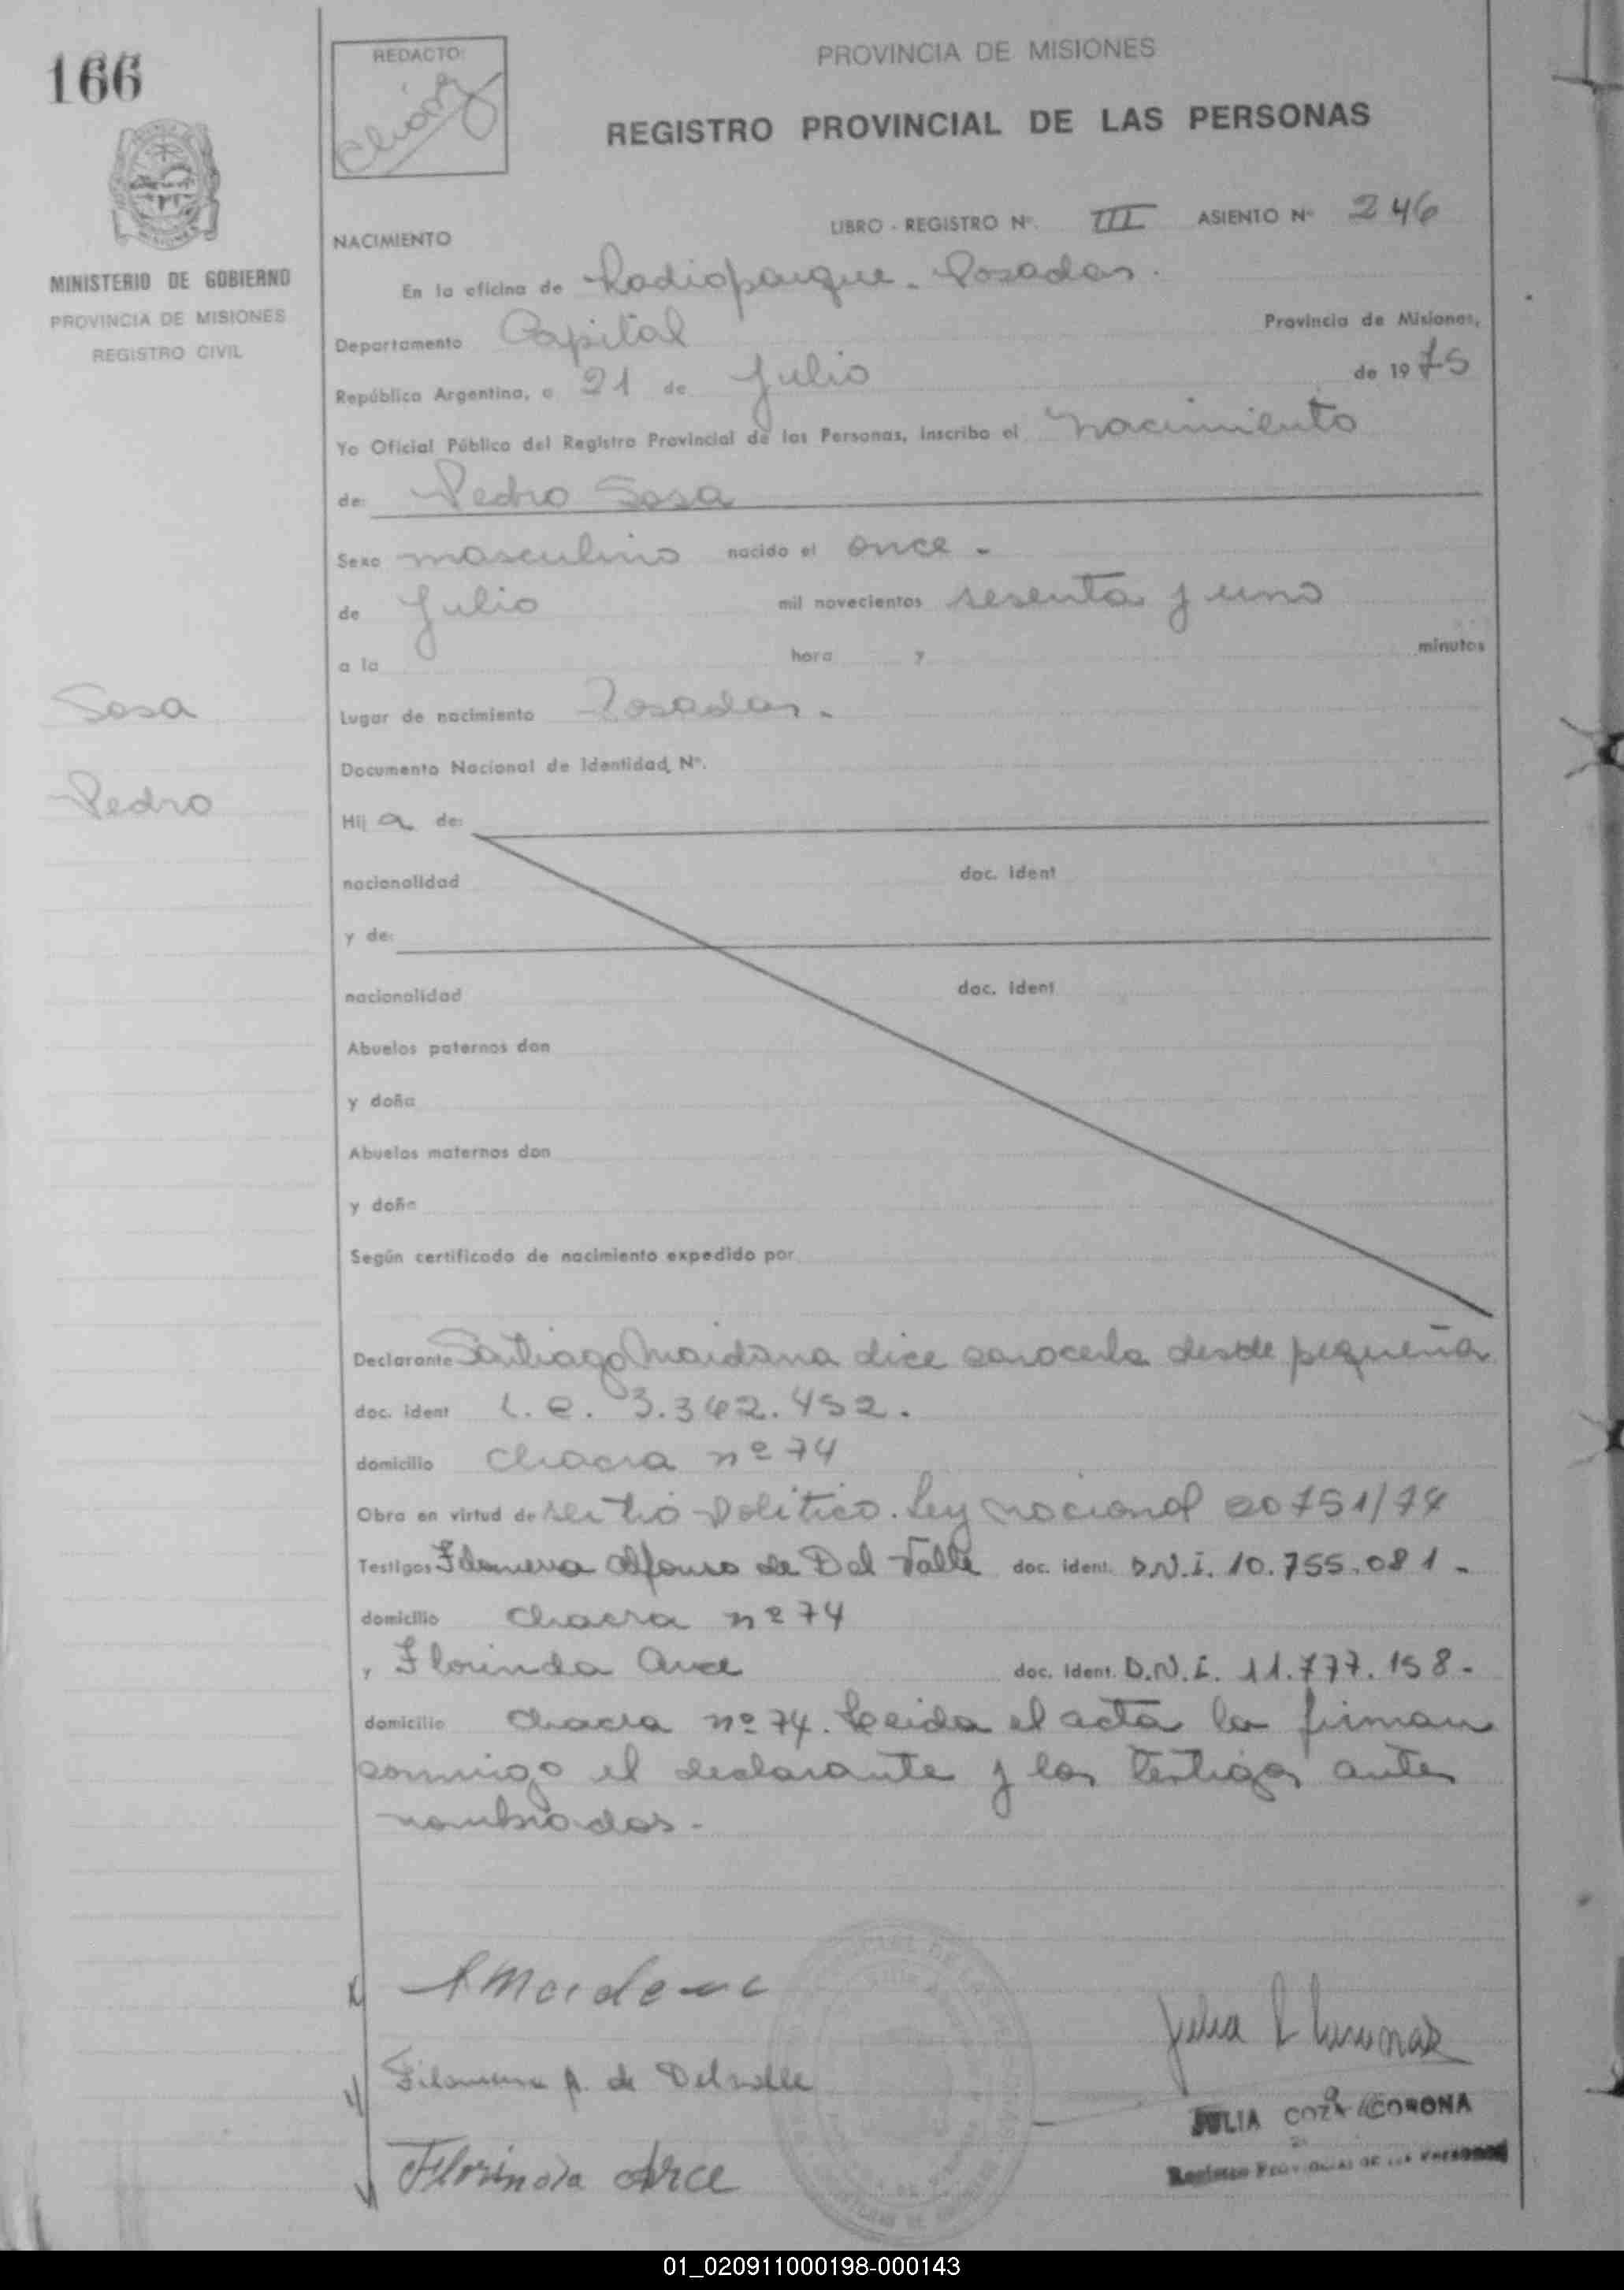 166
REDACTO:
PROVINCIA DE MISIONES
REGISTRO PROVINCIAL DE LAS PERSONAS
MISIONES
MINISTERIO DE GOBIERNO
PROVINCIA DE MISIONES
REGISTRO CIVIL
NACIMIENTO
LIBRO - REGISTRO Nº. III ASIENTO Nº 246
En la oficina de Radioparque - Posadas.
Departamento Capital Provincia de Misiones,
República Argentina, a 21 de Julio de 1975
Yo Oficial Público del Registro Provincial de las Personas, inscribo el nacimiento
de: Pedro Sosa
Sexo masculino nacido el once -
de Julio mil novecientos sesenta y uno
a la hora y minutos
Sosa
Lugar de nacimiento Posadas. -
Documento Nacional de Identidad, Nº.
Pedro
Hij a de:
nacionalidad doc. ident
y de:
nacionalidad doc. ident
Abuelos paternos don
y doña
Abuelos maternos don
y doña
Según certificado de nacimiento expedido por
Declarante Santiago Maidana dice conocerla desde pequeña
doc. ident L.E. 3.342.452.
domicilio Chacra nº 74
Obra en virtud de Politico. Ley nacional 20751/74
Testigos Filomena Alfonso de Del Valle doc. ident. D.N.I. 10.755.081 -
domicilio Chacra nº 74
y Florinda Arce doc. ident. D.N.I. 11.777.158 -
domicilio Chacra nº 74. Leida el acta la firman
conmigo el declarante y los testigos antes
nombrados. -
Filomena A. de Delvalle
JULIA CORONA
Florinda Arce
01_020911000198-000143